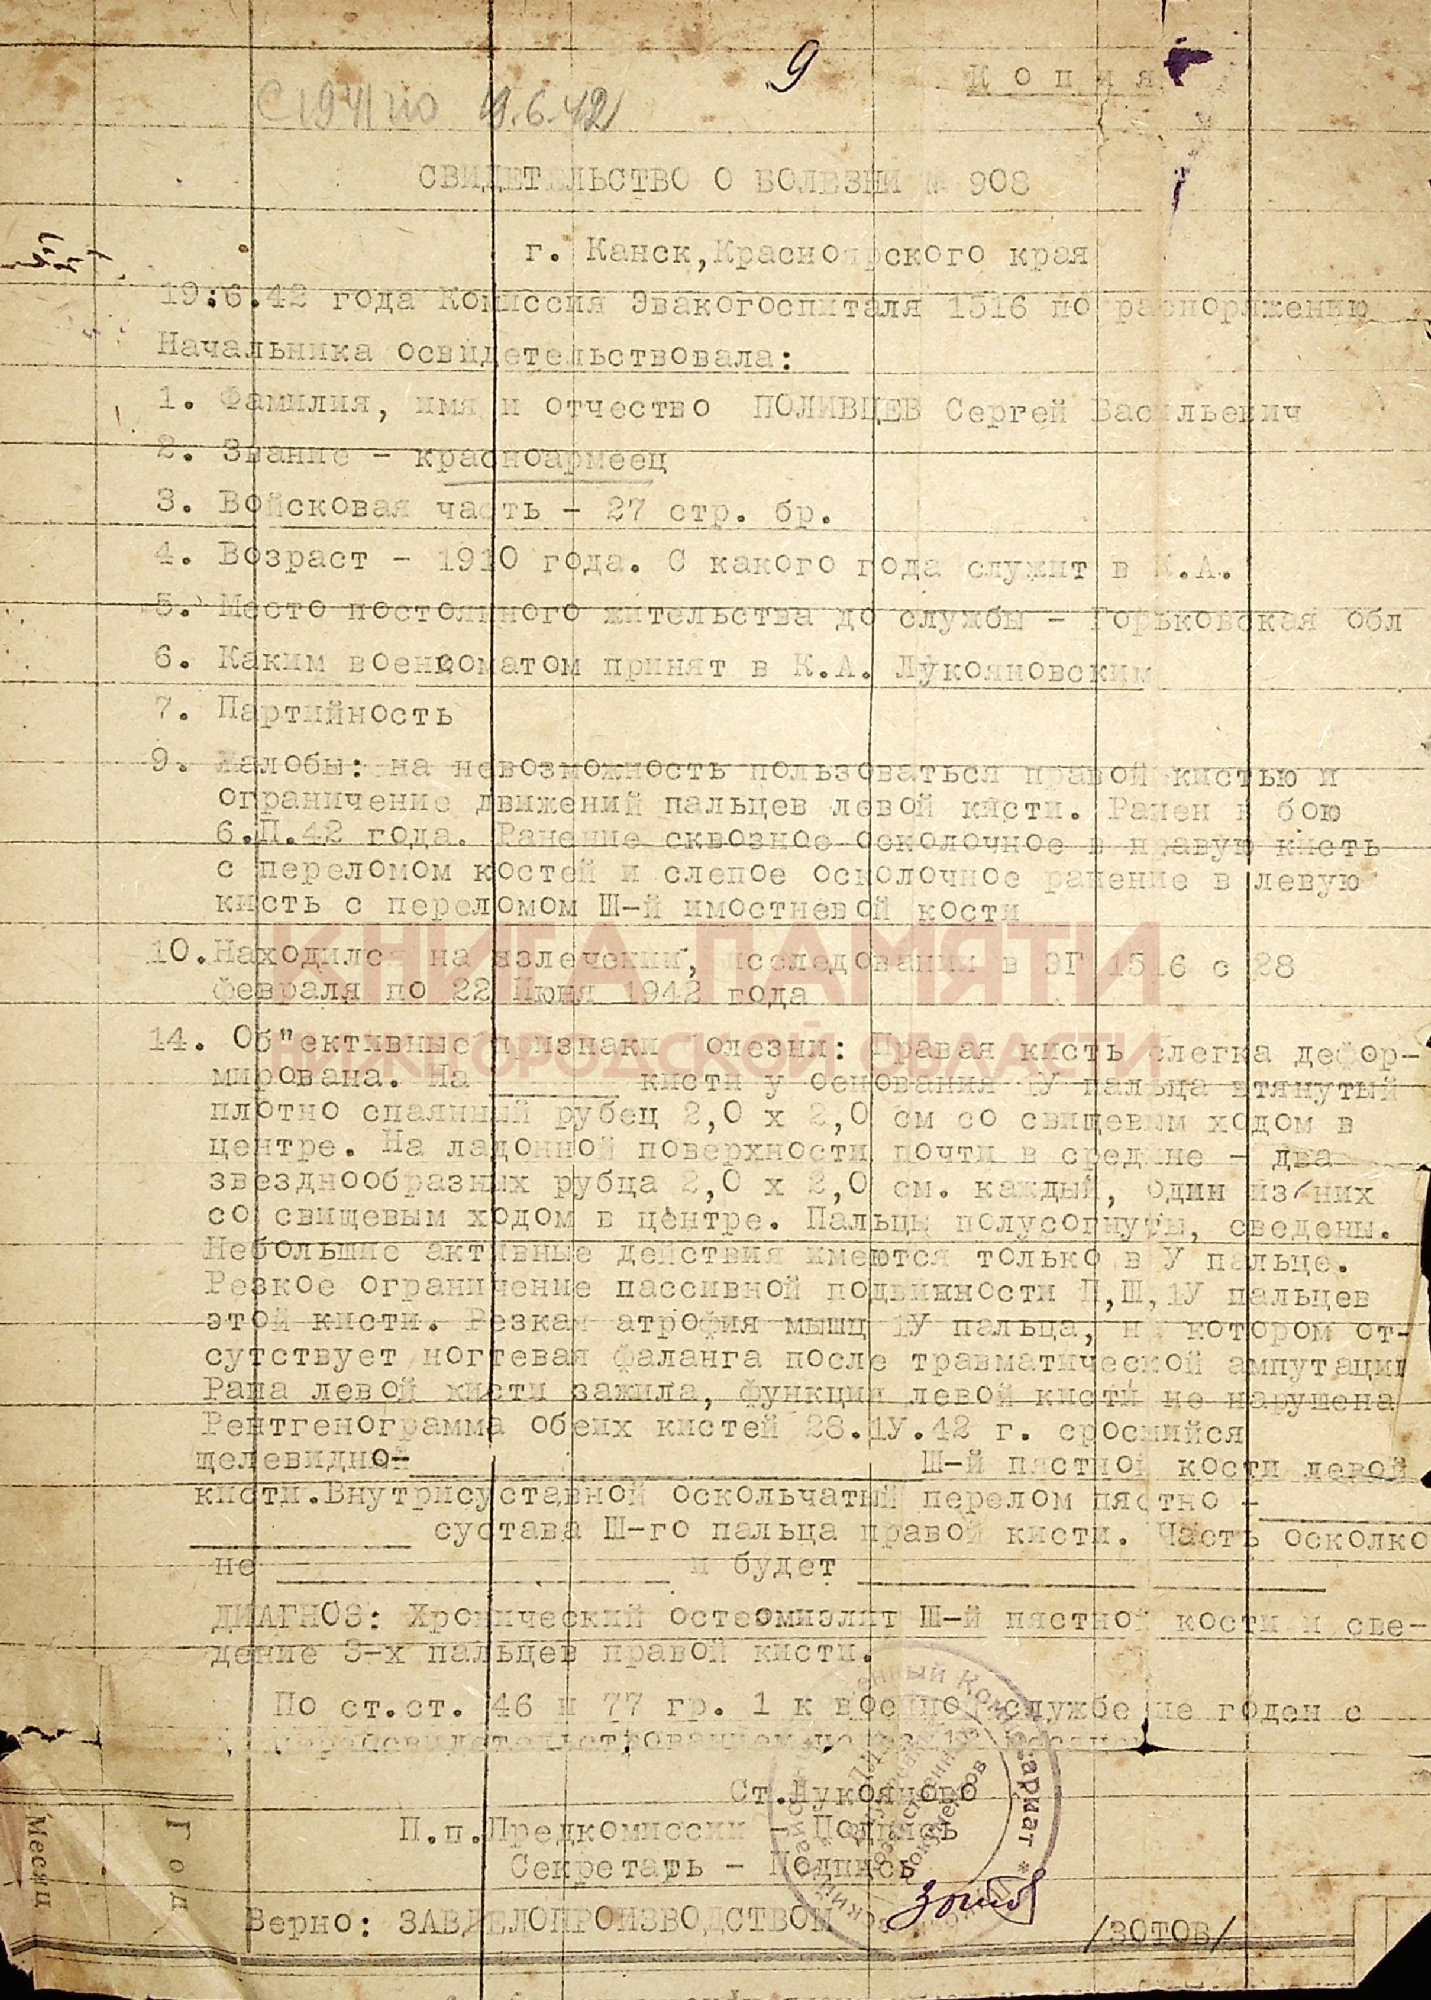 9
Копия
19.6.42
СВИДЕТЕЛЬСТВО О БОЛЕЗНИ № 908
г. Канск,Красноярского края
19:6.42 года Комиссия Эвакогоспиталя 1516 по распоряжению
Начальника освидетельствовала:
1. Фамилия, имя и отчество ПОЛИВЦЕВ Сергей Васильевич
2. Звание - красноармеец
3. Войсковая часть - 27 стр. бр.
4. Возраст - 1910 года. С какого года служит в К.А.
5. Место постоянного жительства до службы - Горьковская обл
6. Каким военкоматом принят в К.А. Лукояновским
7. Партийность
9. Жалобы: на невозможность пользоваться правой кистью и
ограничение движений пальцев левой кисти. Ранен в бою
6.П.42 года. Ранение сквозное осколочное в правую кисть
с переломом костей и слепое осколочное ранение в левую
кисть с переломом Ш-й имостневой кости
КНИГА ПАМЯТИ
10.Находился на излечении, исследовании в ЭГ 1516 с 28
февраля по 22 Июня 1942 года
НИЖЕГОРОДСКОЙ ОБЛАСТИ
14. Об"ективные признаки болезни: Правая кисть слегка дефор-
мирована. На ______ кисти у основания 1У пальца втянутый
плотно спаянный рубец 2,0 х 2,0 см со свищевым ходом в
центре. На ладонной поверхности почти в средине - два
звезднообразных рубца 2,0 х 2,0 см. каждый, один из них
со свищевым ходом в центре. Пальцы полусогнуты, сведены.
Небольшие активные действия имеются только в У пальце.
Резкое ограничение пассивной подвижности П,Ш,1У пальцев
этой кисти. Резкая атрофия мышц 1У пальца, на котором от-
сутствует ногтевая фаланга после травматической ампутации
Рана левой кисти зажила, функция левой кисти не нарушена
Рентгенограмма обеих кистей 28.1У.42 г. сросшийся
щелевидной ______ Ш-й пястной кости левой
кисти.Внутрисуставной оскольчатый перелом пястно - ______
______ сустава Ш-го пальца правой кисти. Часть осколко
не ______ и будет ______
ДИАГНОЗ: Хронический остеомиэлит Ш-й пястной кости и све-
дение 3-х пальцев правой кисти.
По ст.ст. 46 и 77 гр. 1 к военной службе не годен с
переосвидетельствованием через
Ст.Лукояново
П.п.Предкомиссии - Подпись
Секретать - Подпись
Верно: ЗАВДЕЛОПРОИЗВОДСТВОМ Зотов /ЗОТОВ/
Комиссариат *
Месяц
Год